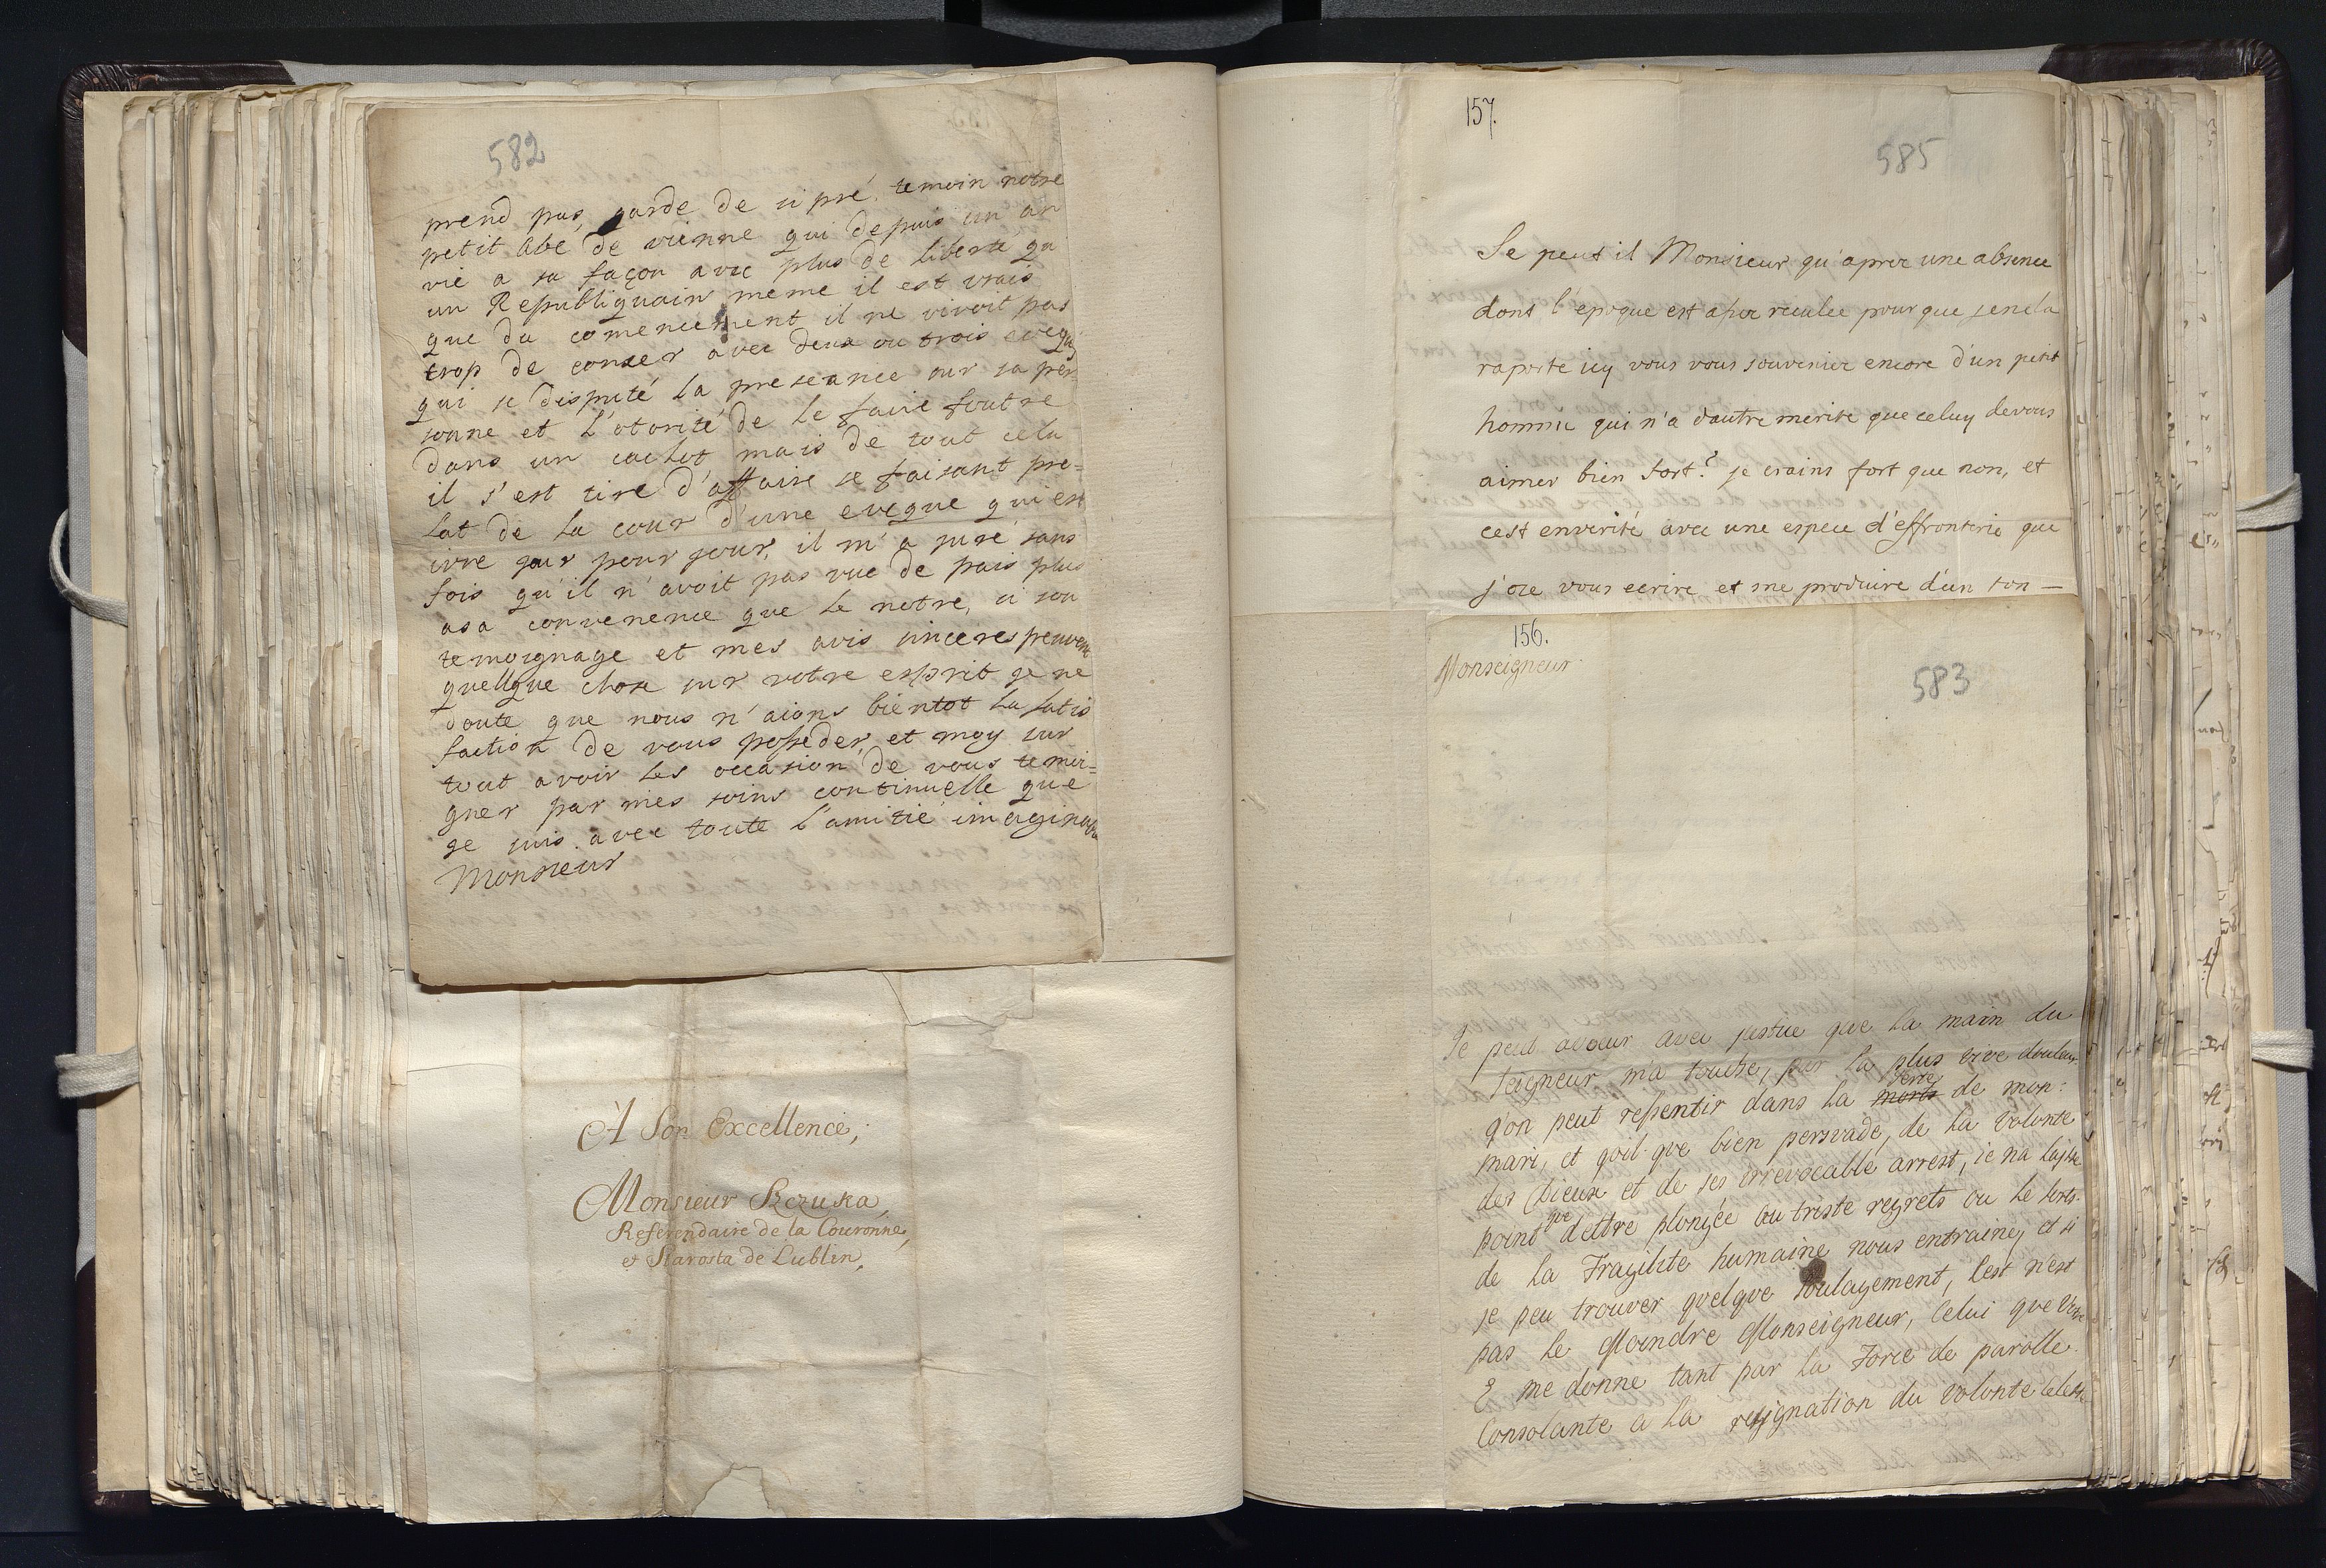 582
prend pas, garde de si pré. temoin notre
petit Abé de vienne qui depuis un an
vie a sa façon avec plus de liberté qu
un Republiquain meme il est vrais
que du comencement il ne vivoit pas
trop de concer avec deux ou trois eveq
qui se disputé la preseance sur sa per=
sonne et l'otorité de le faire foutre
dans un cachot mais de tout cela
il s'est tire d'affaire se faisant pre=
lat de la cour d'une eveque qui est
ivre jour pour jour, il m'a juré sans
fois qu'il n'avoit pas vue de pais plus
asa convenence que le notre, si son
temoignage et mes avis sinceres peuvent
quellque chose sur votre esprit je ne
doute que nous n'aions bientot la satis
faction de vous posseder, et moy sur
tout avoir les occasion de vous temoi=
gner par mes soins continuelle que
je suis avec toute l'amitié imaginable
Monsieur
A Son Excellence,
Monsieur Szczuka,
Referendaire de la Couronne,
et Starosta de Lublin,
157.
585
Se peut il Monsieur qu'aprer une absence
dont l'epoque est assez reculee pour que jenela
raporte icy vous vous souveniez encore d'un petit
homme qui n'a d'autre merite que celuy devous
aimer bien fort? je crains fort que non, et
cest enverité avec une espece d'effronterie que
j'oze vous ecrire et me produire d'un ton —
156.
Monseigneur
583
Je peut avour avec justice que la main du
Seigneur m'a touche, par la plus vive douleur
q'on peut ressentir dans la morts perte de mon:
mari, et qoil-qve bien persvadé, de la volonte
des Dieux et de ses irrevocable arrest, ie na laisse
point que dettre plongée au triste regrets ou le sorts
de la Fragilite humaine nous entraine, et si
je peu trouver quelqve soulagement, Cest n'est
pas le Moindre Monseigneur, Celui que Votre
E me donne tant par la Force de parolle
Consolante a la resignation du volonte Celeste